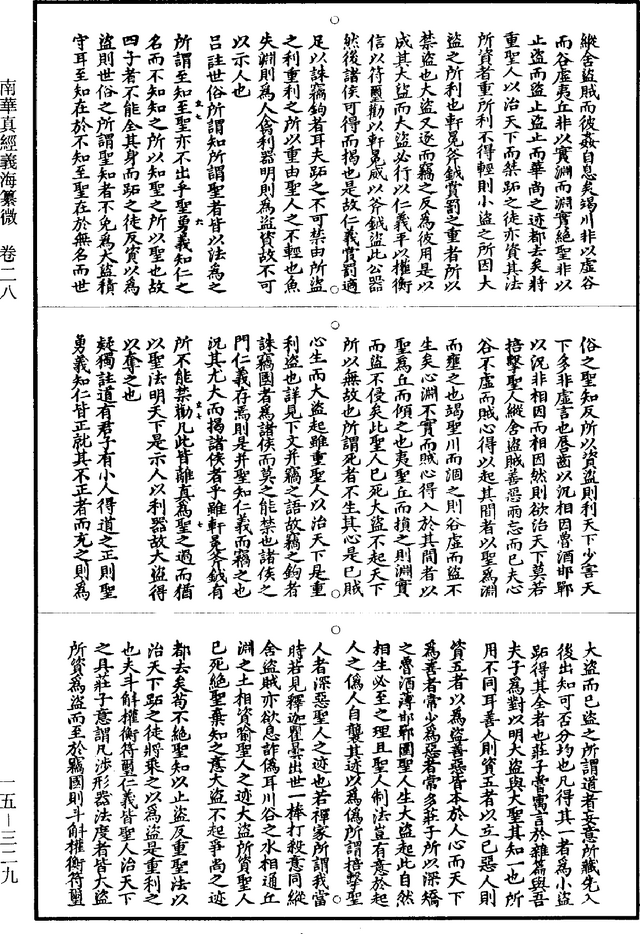 縱舍盜賊而彼姦自息矣竭川非以虛谷
而谷虛夷丘非以實淵而淵實絕聖非以
止盜而盜止盜止而華尚之迹都去矣將
重聖人以治天下而桀跖之徒亦資其法
所資者重所利不得輕則小盜之所因大
盜之所利也軒冕斧鉞賞罰之重者所以
禁盜也大盜又逐而竊之反為彼用是以
成其大盜而大盜必行以仁義平以權衡
信以符璽勸以軒冕威以斧鉞盜此公器
然後諸侯可得而揭也是故仁義賞罰適
足以誅竊鉤者耳夫跖之不可禁由所盜
之利重利之所以重由聖人之不輕也魚
失淵則為人禽利器明則為盜資故不可
以示人也
呂註世俗所謂知所謂聖者皆以法為之
所謂至知至聖亦不出乎聖勇義知仁之
名而不知知之所以知聖之所以聖也故
四子者不能全其身而跖之徒反資以為
盜則世俗之所謂聖知者不免為大盜積
守耳至知在於不知至聖在於無名而世
俗之聖知反所以資盜則利天下少害天
下多非虛言也唇齒以況相因魯酒邯鄲
以況非相因而相因然則欲治天下莫若
掊擊聖人縱舍盜賊善惡兩忘而已夫心
谷不虛而賊心得以起其間者以聖為淵
而壅之也竭聖川而涸之則谷虛而盜不
生矣心淵不實而賊心得入於其間者以
聖為丘而傾之也夷聖丘而損之則淵實
而盜不侵矣此聖人已死大盜不起天下
所以無故也所謂死者不生其心是已賊
心生而大盜起雖重聖人以治天下是重
利盜也詳見下文并竊之語故竊之鉤者
誅竊國者為諸侯而莫之能禁也諸侯之
門仁義存焉則是并聖知仁義而竊之也
況其尤大而揭諸侯者乎雖軒冕斧鉞有
所不能禁勸凡此皆離真為聖之過而猶
以聖法明天下是示人以利器故大盜得
以奪之也
疑獨註道有君子有小人得道之正則聖
勇義知仁皆正就其不正者而充之則為
大盜而已盜之所謂道者妄意所藏先入
後出知可否分均也凡得其一者為小盜
跖得其全者也莊子嘗寓言於雜篇與吾
夫子為對以明大盜與大聖其知一也所
用不同耳善人則資五者以立已惡人則
資五者以為盜善惡皆本於人心而天下
為善者常少為惡者常多莊子所以深矯
之魯酒薄邯鄲圍聖人生大盜起此自然
相生必至之理且聖人制法豈有意於起
人之偽人自襲其迹以為偽所謂掊擊聖
人者深惡聖人之迹也若禪家所謂我當
時若見釋迦瞿曇出世一棒打殺意同縱
舍盜賊亦欲息詐偽耳川谷之水相通丘
淵之土相資喻聖人之迹大盜所資聖人
已死絕聖棄知之意大盜不起爭尚之迹
都去矣苟不絕聖知以止盜反重聖法以
治天下跖之徒將乘之以為盜是重利之
也夫斗斛權衡符璽仁義皆聖人治天下
之具莊子意謂凡涉形器法度者皆大盜
所資為盜而至於竊國則斗斛權衡符璽
南華真經義海纂微 卷二八
一五－三二九